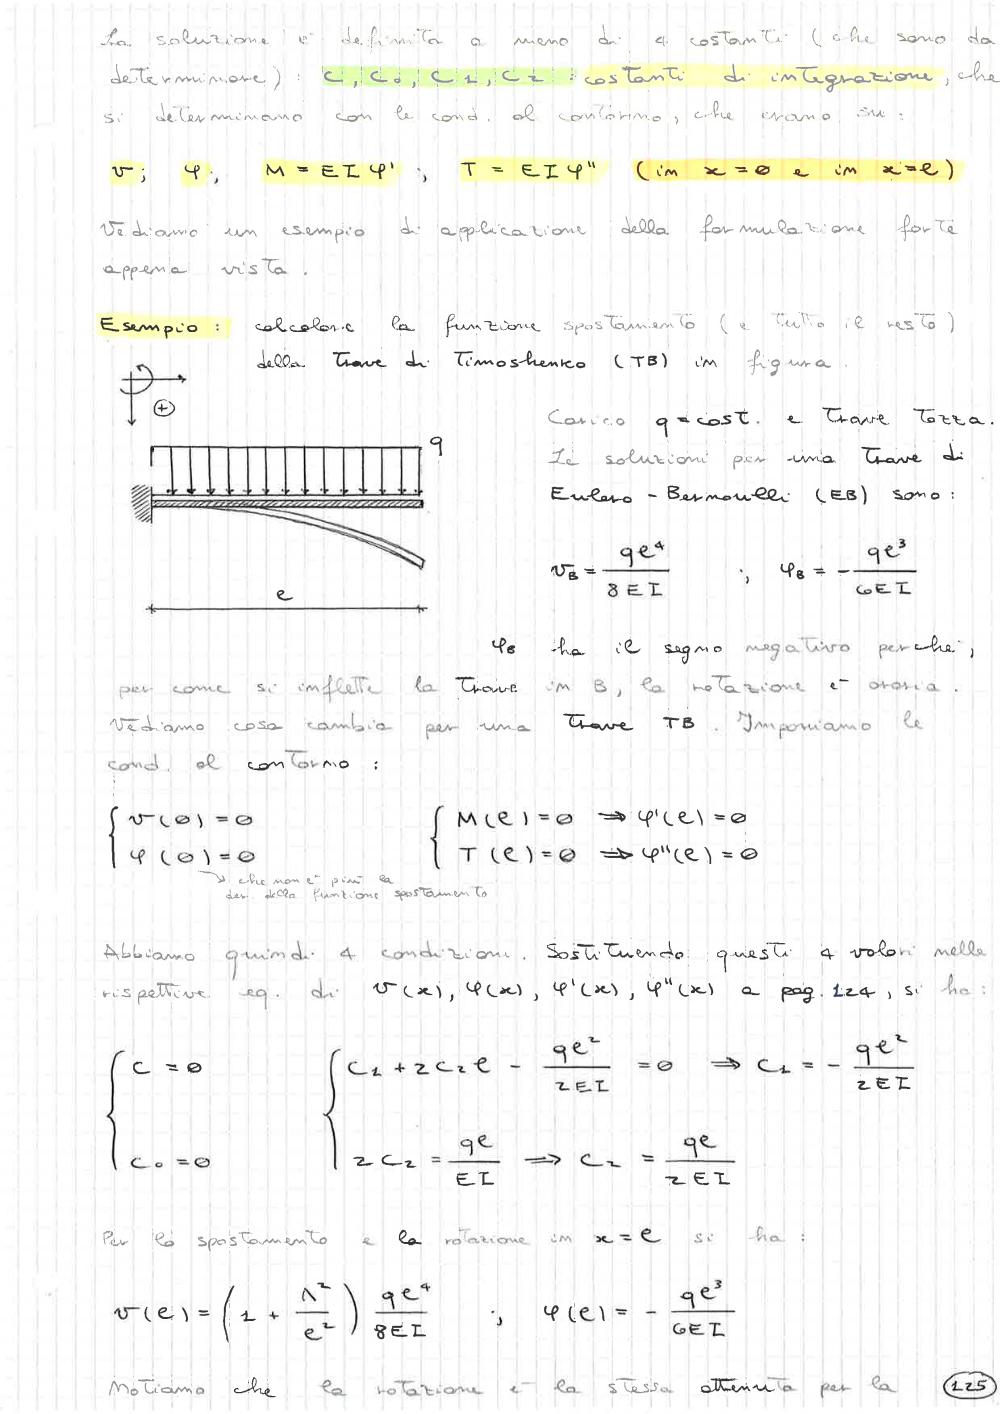 La soluzione è definita a meno di 4 costanti (che sono da
determinare): C, C₀, C₁, C₂ : costanti di integrazione, che
si determinano con le cond. al contorno, che erano su:
v; φ; M = EIφ' ; T = EIφ'' (in x=0 e in x=l)
Vediamo un esempio di applicazione della formulazione forte
appena vista.
Esempio: calcolare la funzione spostamento (e tutto il resto)
della trave di Timoshenko (TB) in figura.
+
q
l
Carico q=cost. e trave tozza.
Le soluzioni per una trave di
Eulero-Bernoulli (EB) sono:
v_B = ql⁴/8EI ; φ_B = - ql³/6EI
φ_B ha il segno negativo perché,
per come si inflette la trave in B, la rotazione è oraria.
Vediamo cosa cambia per una trave TB. Imponiamo le
cond. al contorno:
{ v(0)=0 { M(l)=0 ⇒ φ'(l)=0
φ(0)=0 T(l)=0 ⇒ φ''(l)=0
↘ che non è più la
der. della funzione spostamento
Abbiamo quindi 4 condizioni. Sostituendo questi 4 valori nelle
rispettive eq. di v(x), φ(x), φ'(x), φ''(x) a pag. 124, si ha:
{ C = 0 { C₁ + 2C₂l - ql²/2EI = 0 ⇒ C₁ = - ql²/2EI
C₀ = 0 2C₂ = ql/EI ⇒ C₂ = ql/2EI
Per lo spostamento e la rotazione in x=l si ha:
v(l) = (1 + Λ²/l²) ql⁴/8EI ; φ(l) = - ql³/6EI
Notiamo che la rotazione è la stessa ottenuta per la
125